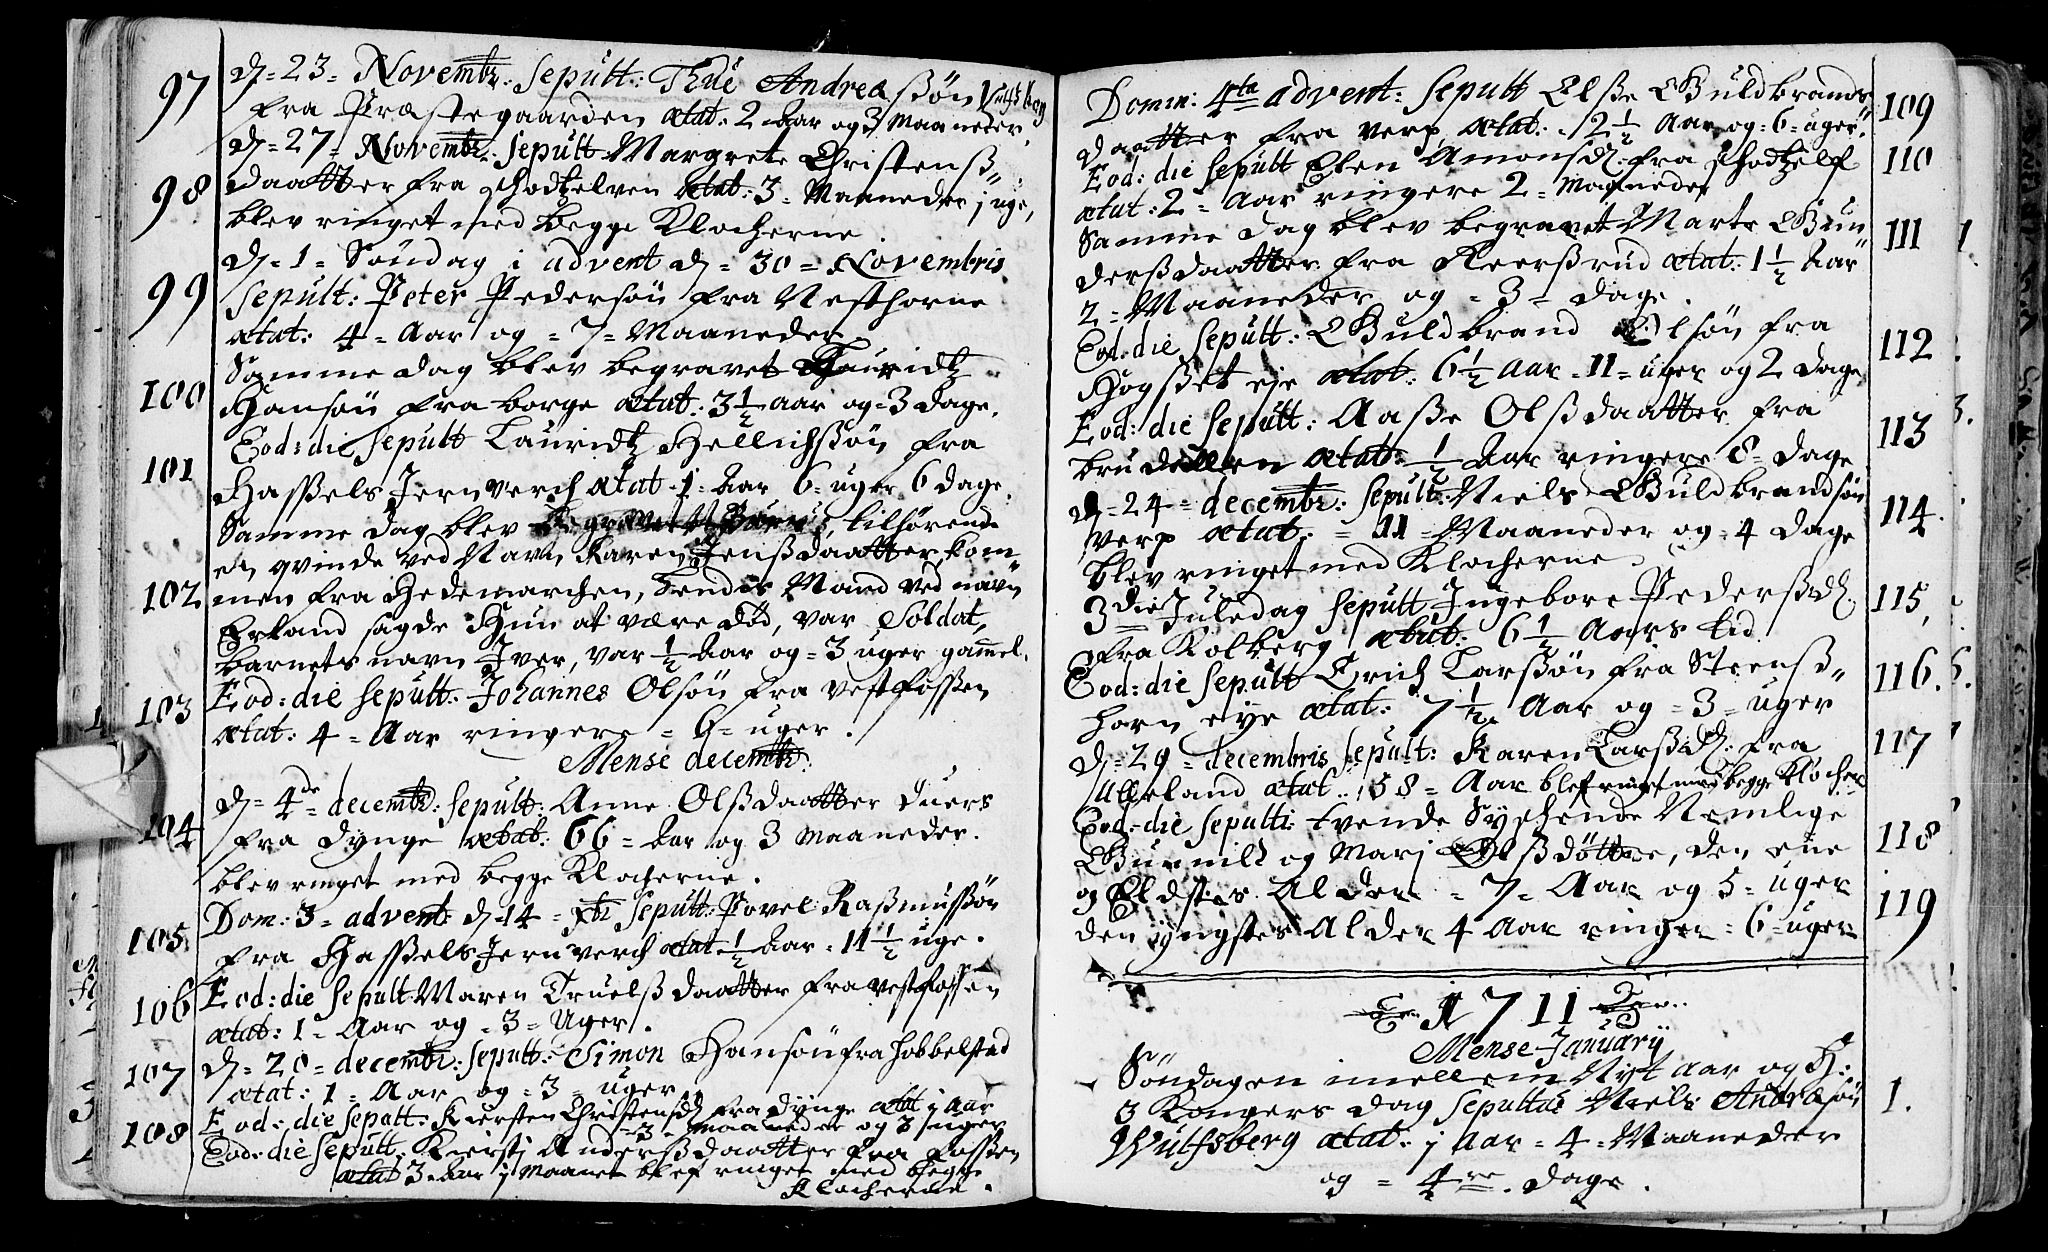 97
D = 23 = Novembr: Sepult: Thue Andreasøn Wulfsberg
fra Præstegaarden ætat: 2 Aar og 3 Maaneder.
98
D = 27 = Novembr: Sepult Margrete Christenß
daatter fra Hodtzelven ætat: 3 = Maaneder j uge,
blev ringet med begge Klocherne.
D = 1 = Søndag i advent D = 30 = Novembris
99
Sepult: Peter Pedersøn fra Vesthorne
ætat: 4 = Aar og = 7 = Maaneder
Samme dag blev begravet Lauridtz
100
Hansøn fra borge ætat: 3 1/2 aar og = 3 dage.
Eod: die Sepult Lauridtz Hellichsøn fra
101
Haßels Jernverch ætat 1 = Aar 6 = uger 6 dage.
Samme dag blev begravet tilhørende
en qvinde ved Navn Karen Jenßdaatter, kom
102
men fra Hedemarchen, hendes Mand ved navn
Erland sagde Hun at være død, var Soldat,
barnets navn Iver, var 1/2 Aar og = 3 uger gamel.
103
Eod: die Sepult: Johannes Olsøn fra Vestfossen
ætat: 4 = Aar ringere = 6 = uger.
Mense decembr.
D = 4de = decembr: Sepult: Anne Olßdaatter
104
fra Dynge ætat: 66 = Aar og 3 Maaneder.
blev ringet med begge Klocherne.
Dom: 3 = advent D 14 = xbr Sepult: Povel Raßmußsøn
105
fra Haßels Jernverch ætat 1/2 Aar = 11 1/2 uge.
106
Eod: die Sepult Maren Truelßdaatter fra Vestfossen
ætat: 1 = Aar og = 3 = Uger.
107
D = 20 = decembr: Sepult: Simon Hansøn fra Hobbelstad
ætat: 1 = Aar og = 3 = uger.
Eod: die Sepult: Kiersten Christensd fra Dynge ætat j Aar
108
3 = Maaneder og 3 uger
Eod: die Sepult: Kiersti Anderßdaatter fra Fossen
ætat 3 = Aar j Maanet blef ringet med begge
Klocherne.
Domin: 4ta advent: Sepult Elße Guldbrands
109
daatter fra Verp, ætat: 2 1/2 Aar og = 6 = uger.
Eod: die Sepult Eden Amonsd: fra Hodtzelf
110
ætat: 2 = Aar ringere 2 = Maaneder
Samme dag blev begravet Marte Gun
111
derßdaatter fra Reerßrud ætat: 1 1/2 Aar
2 = Maaneder og = 3 = dage.
Eod: die Sepult: Guldbrand Olsøn fra
112
Hogßet eje ætat: 6 1/2 Aar = 11 = uger og 2 dage
Eod: die Sepult: Aaße Olßdaatter fra
113
brudellen ætat: 1/2 Aar ringere 8 = dage
D = 24 = decembr: Sepult: Niels Guldbrandsøn
114.
Verp ætat: = 11 = Maaneder og = 4 dage
blev ringet med Klocherne
3die Juledag Sepult Ingebore Pederßd.
115,
fra Kolberg, ætat: 6 1/2 Aars tid
Eod: die Sepult Erich Larßøn fra Steenß
116.
horn eye ætat: 7 1/2 Aar og = 3 = uger
D = 29 = decembris Sepult: Karen Larßd: fra
117
ætat: 58 = Aar blef ringet med begge Klocher
Eod: die Sepulti: tvende Syschende Nemlige
118
Gunnild og Marj Olßdøttre, den ene
og Eldstes Alder = 7 = Aar og 5 = uger
119
den yngstes Alder 4 Aar ringer = 6 = uger
1711
Mense Januarij
Søndagen imellem Nyt Aar og H:
3 Kongers dag Sepultus Niels Andreæsøn
1.
Wulfsberg ætat: j Aar = 4 = Maaneder
og = 4re. dage.